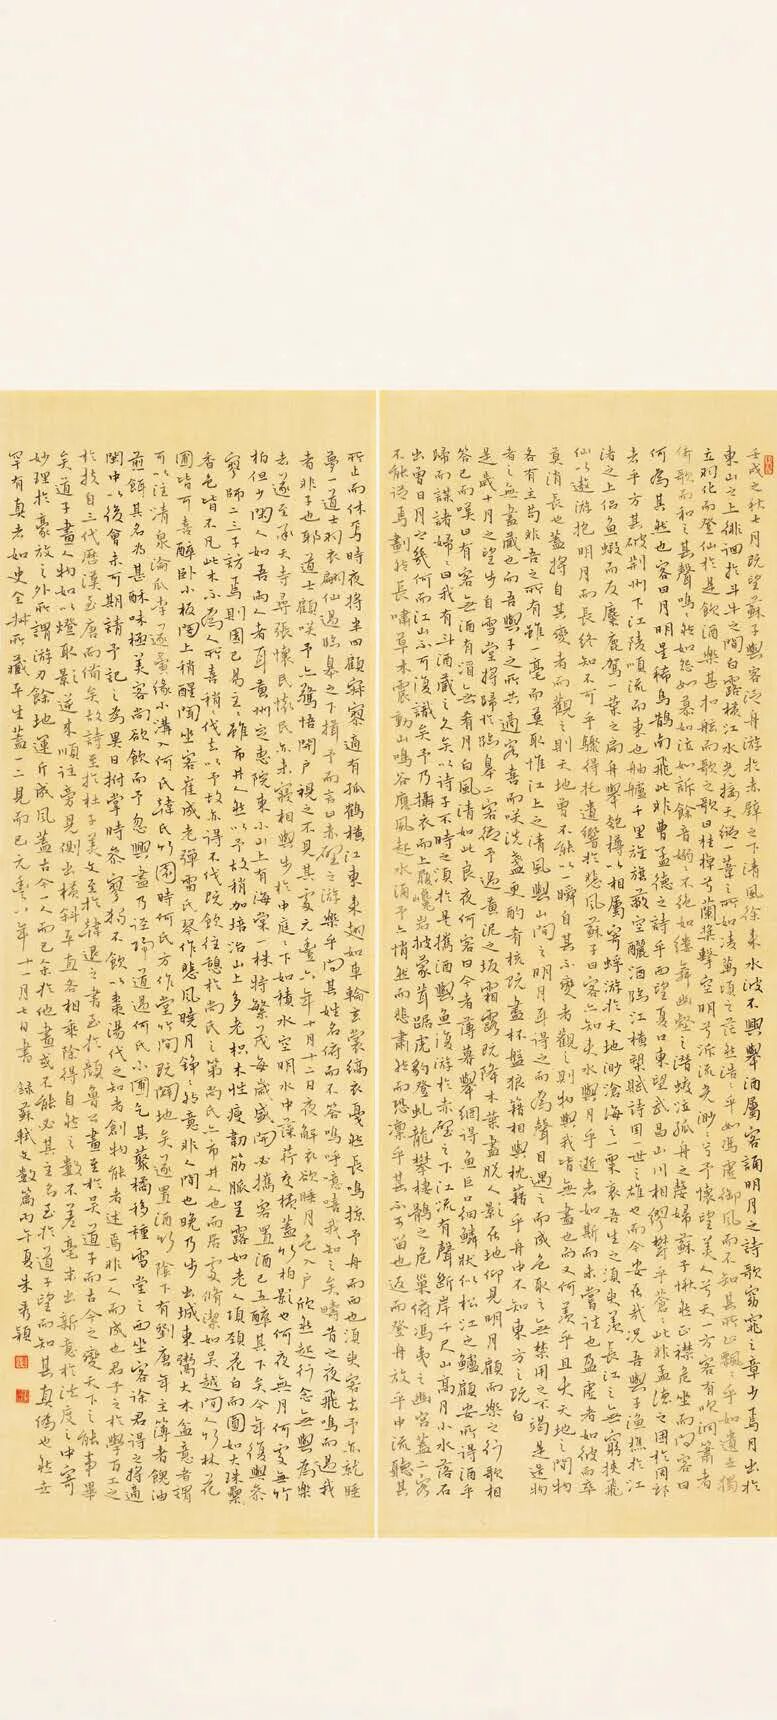 壬戌之秋七月既望蘇子與客泛舟游於赤壁之下清風徐來水波不興舉酒屬客誦明月之詩歌窈窕之章少焉月出於
東山之上徘徊於斗牛之間白露橫江水光接天縱一葦之所如凌萬頃之茫然浩浩乎如馮虛御風而不知其所止飄飄乎如遺世獨
立羽化而登仙於是飲酒樂甚扣舷而歌之歌曰桂棹兮蘭槳擊空明兮泝流光渺渺兮予懷望美人兮天一方客有吹洞簫者
倚歌而和之其聲嗚嗚然如怨如慕如泣如訴餘音嫋嫋不絕如縷舞幽壑之潛蛟泣孤舟之嫠婦蘇子愀然正襟危坐而問客曰
何為其然也客曰月明星稀烏鵲南飛此非曹孟德之詩乎西望夏口東望武昌山川相繆鬱乎蒼蒼此非孟德之困於周郎
者乎方其破荊州下江陵順流而東也舳艫千里旌旗蔽空釃酒臨江橫槊賦詩固一世之雄也而今安在哉況吾與子漁樵於江
渚之上侶魚蝦而友麋鹿駕一葉之扁舟舉匏樽以相屬寄蜉蝣於天地渺滄海之一粟哀吾生之須臾羨長江之無窮挾飛
仙以遨游抱明月而長終知不可乎驟得托遺響於悲風蘇子曰客亦知夫水與月乎逝者如斯而未嘗往也盈虛者如彼而卒
莫消長也蓋將自其變者而觀之則天地曾不能以一瞬自其不變者觀之則物與我皆無盡也而又何羨乎且夫天地之間物
各有主苟非吾之所有雖一毫而莫取惟江上之清風與山間之明月耳得之而為聲目遇之而成色取之無禁用之不竭是造物
者之無盡藏也而吾與子之所共適客喜而咲洗盞更酌肴核既盡杯盤狼籍相與枕藉乎舟中不知東方之既白
是歲十月之望步自雪堂將歸於臨皋二客從予過黃泥之坂霜露既降木葉盡脫人影在地仰見明月顧而樂之行歌相
答已而嘆曰有客無酒有酒無肴月白風清如此良夜何客曰今者薄暮舉網得魚巨口細鱗狀似松江之鱸顧安所得酒乎
歸而謀諸婦婦曰我有斗酒藏之久矣以待子不時之須於是攜酒與魚復游於赤壁之下江流有聲斷岸千尺山高月小水落石
出曾日月之幾何而江山不可復識矣予乃攝衣而上履巉岩披蒙茸踞虎豹登虬龍攀棲鶻之危巢俯馮夷之幽宮蓋二客
不能從焉劃然長嘯草木震動山鳴谷應風起水涌予亦悄然而悲肅然而恐凜乎其不可留也返而登舟放乎中流聽其
所止而休焉時夜將半四顧寂寥適有孤鶴橫江東來翅如車輪玄裳縞衣戛然長鳴掠予舟而西也須臾客去予亦就睡
夢一道士羽衣翩仙過臨皋之下揖予而言曰赤壁之游樂乎問其姓名俯而不答嗚呼噫嘻我知之矣疇昔之夜飛鳴而過我
者非子也耶道士顧咲予亦驚悟開戶視之不見其處元豐六年十月十二日夜解衣欲睡月色入戶欣然起行念無與為樂
者遂至承天寺尋張懷民懷民亦未寢相與步於中庭庭下如積水空明水中藻荇交橫蓋竹柏影也何夜無月何處無竹
柏但少閑人如吾兩人者耳黃州定惠院東小山上有海棠一株特繁茂每歲盛開必攜客置酒已五醉其下矣今年復與參
寥師二三子訪焉則園已易主主雖市井人然以予故稍加培治山上多老枳木性瘦韌筋脈呈露如老人項頸花白而圓如大珠纍纍
香色皆不凡此木不為人所喜稍稍伐去以予故亦得不伐既飲往憩於尚氏之第尚氏亦市井人也而居處修潔如吳越間人竹林花
圃皆可喜醉臥小板閣上稍醒聞坐客崔成老彈雷氏琴作悲風曉月錚錚然意非人間也晚乃步出城東鬻大木盆意者謂
可以注清泉瀹瓜李遂夤緣小溝入何氏韓氏竹園時何氏方作堂竹間既闢地矣遂置酒竹陰下有劉唐年主簿者餽油
煎餌其名為甚酥味極美客尚欲飲而予忽興盡乃徑歸道過何氏小圃乞其藂橘移種雪堂之西坐客徐君得之將適
閩中以後會未可期請予記之為異日拊掌時參寥獨不飲以棗湯代之知者創物能者述焉非一人而成也君子之於學百工之
於技自三代歷漢至唐而備矣故詩至於杜子美文至於韓退之書至於顏魯公畫至於吳道子而古今之變天下之能事畢
矣道子畫人物如以燈取影逆來順往旁見側出橫斜平直各相乘除得自然之數不差毫末出新意於法度之中寄
妙理於豪放之外所謂游刃餘地運斤成風蓋古今一人而已余於他畫或不能必其主名至於道子望而知其真偽也然世
罕有真者如史全叔所藏平生蓋一二見而已元豐八年十一月七日書 錄蘇軾文數篇丙午夏朱秀穎